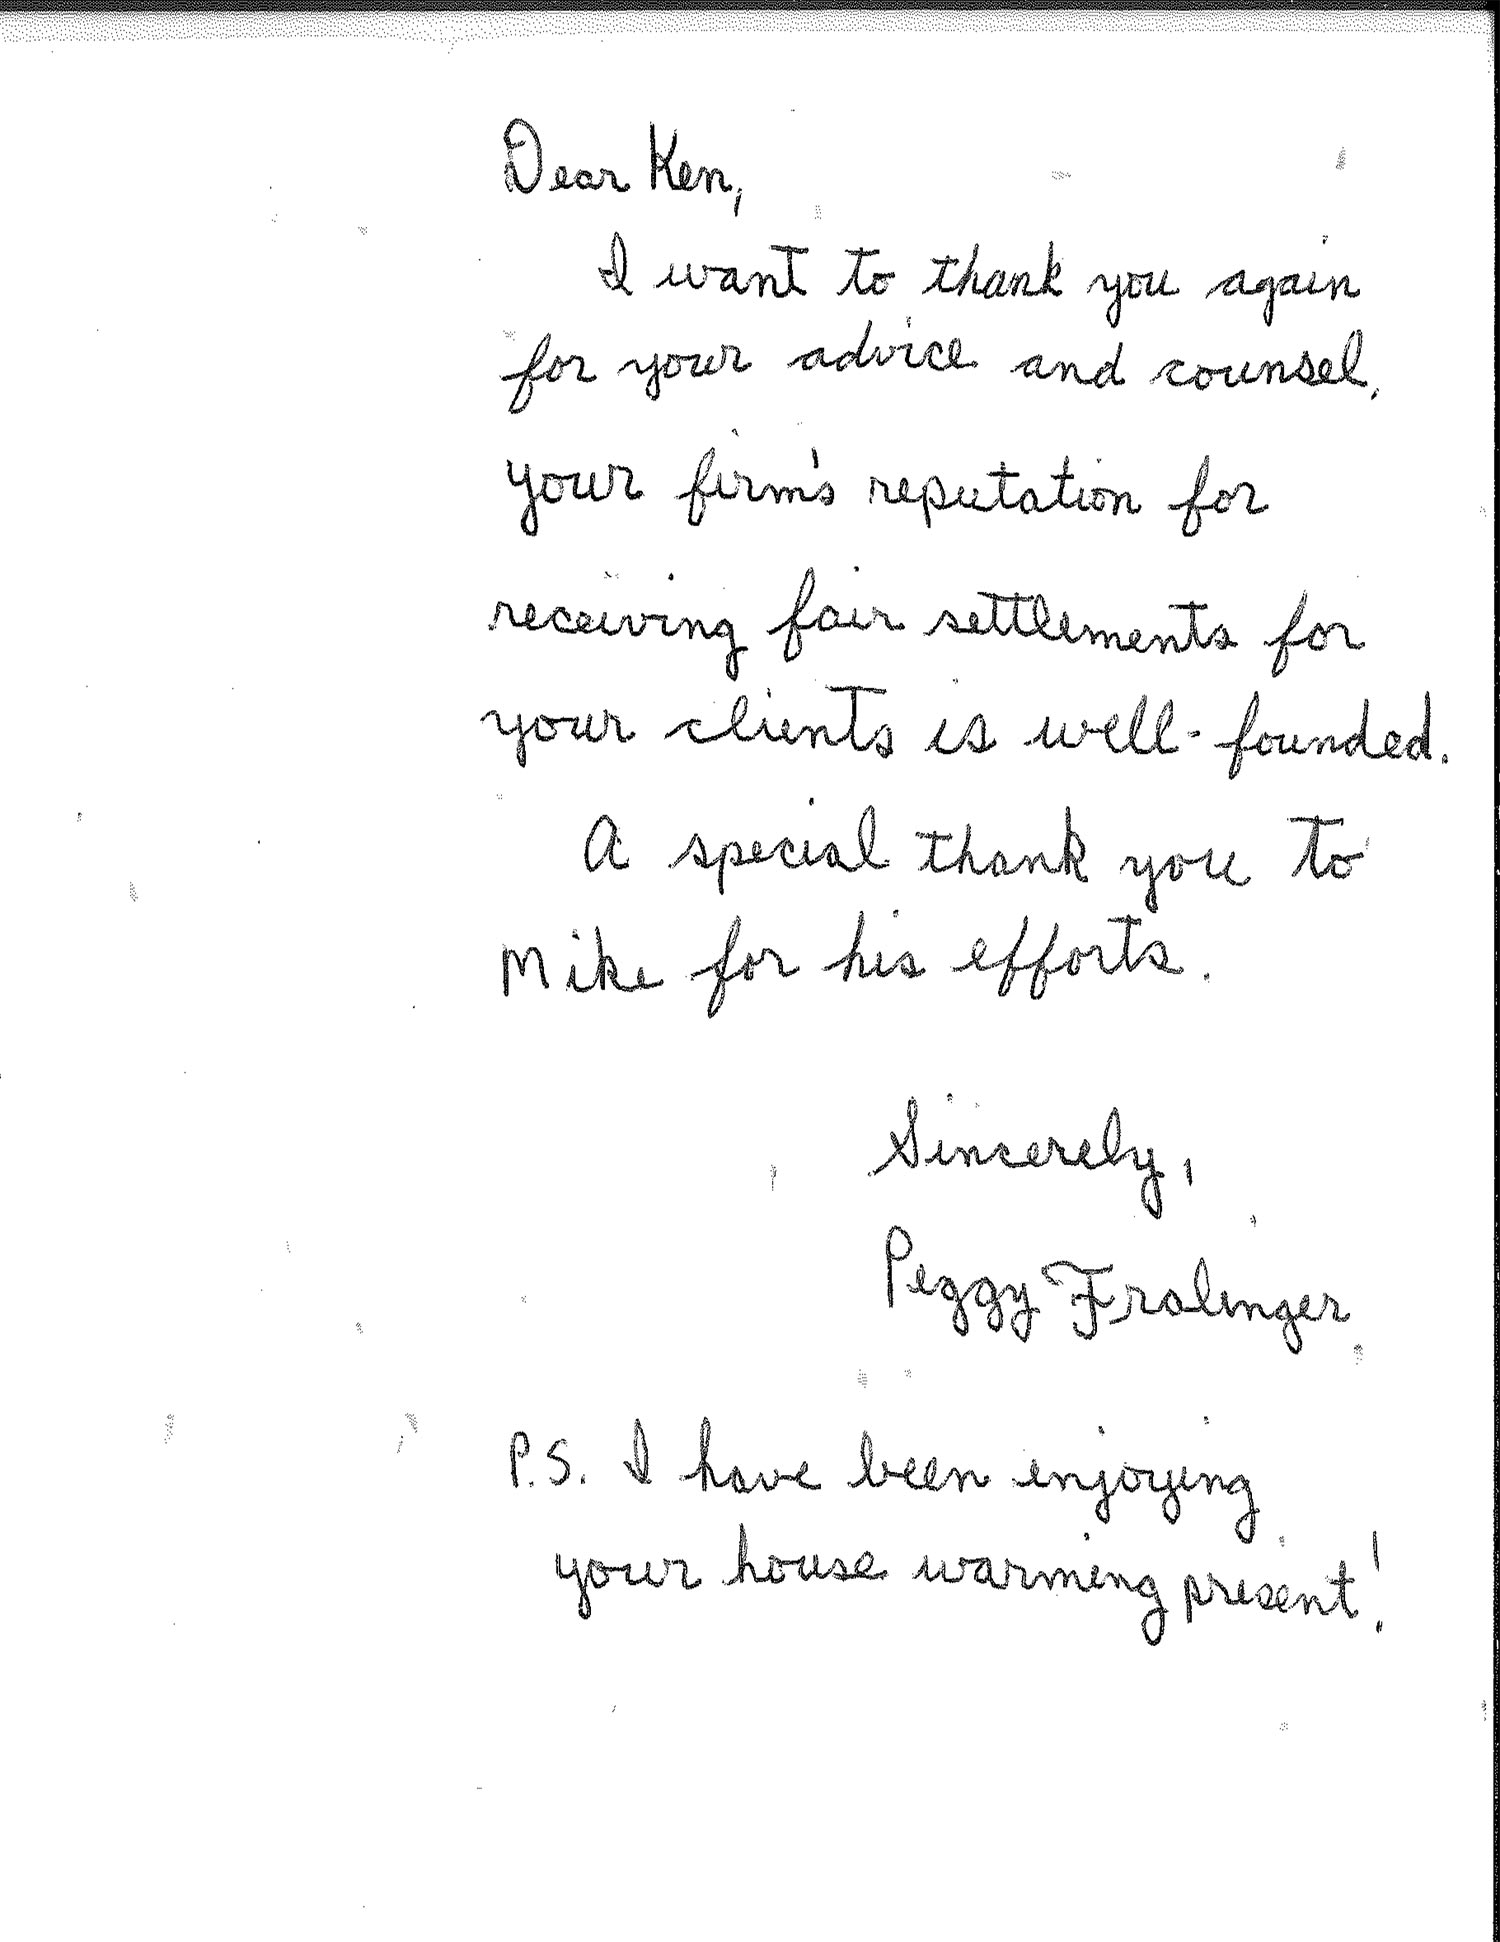 Dear Ken,
I want to thank you again
for your advice and counsel.
your firm's reputation for
receiving fair settlements for
your clients is well-founded.
A special thank you to
Mike for his efforts.
Sincerely,
Peggy Fralinger
P.S. I have been enjoying
your house warming present!